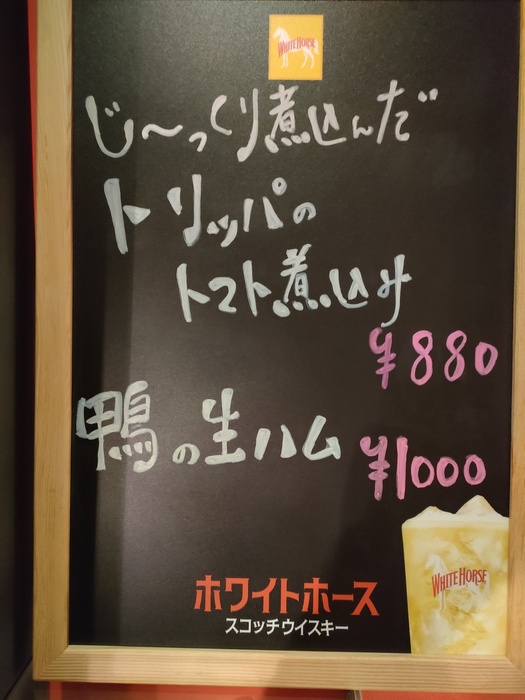 WHITE HORSE
じ～っくり煮込んだ
トリッパの
トマト煮込み
¥880
鴨の生ハム ¥1000
WHITE HORSE
ホワイトホース
スコッチウイスキー